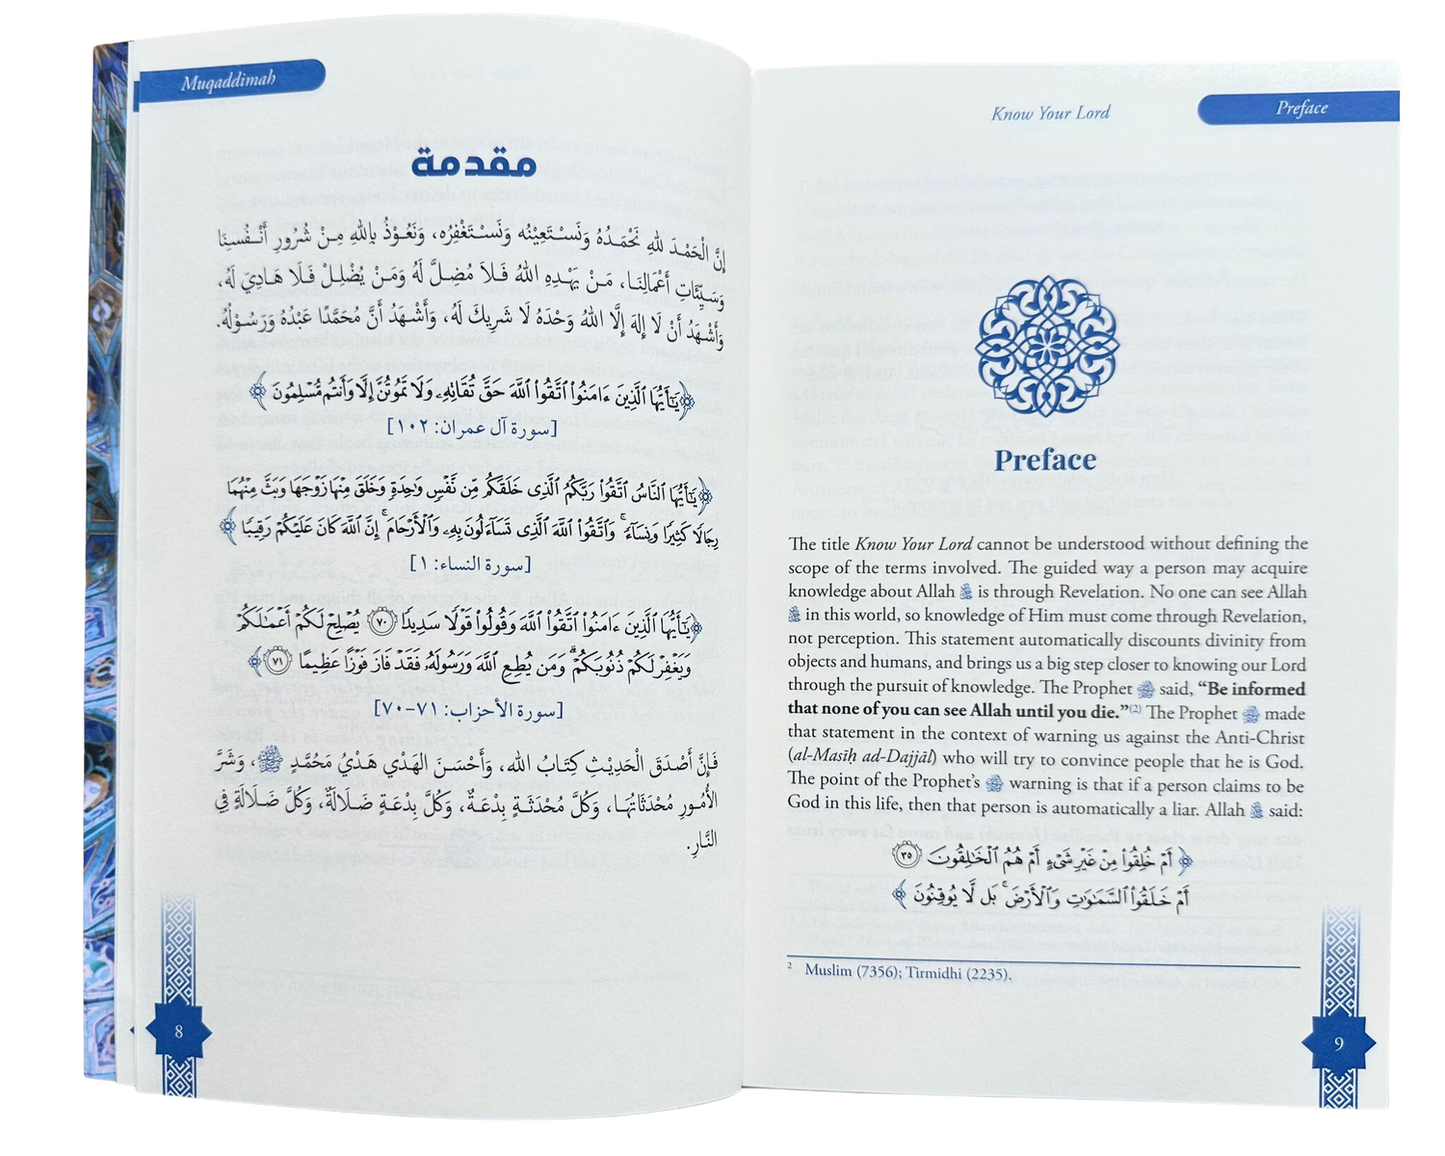 Muqaddimah
مقدمة
إِنَّ الْحَمْدَ لِلهِ نَحْمَدُهُ وَنَسْتَعِيْنُه وَنَسْتَغْفِرُه، وَنَعُوْذُ بِاللهِ مِنْ شُرُورِ أَنْفُسِنَا
وَسَيِّئَاتِ أَعْمَالِنَا، مَنْ يَهْدِهِ اللهُ فَلاَ مُضِلَّ لَهُ وَمَنْ يُضْلِلْ فَلَا هَادِيَ لَهُ،
وَأَشْهَدُ أَنْ لَا إِلهَ إِلَّا اللهُ وَحْدَهُ لَا شَرِيكَ لَهُ، وَأَشْهَدُ أَنَّ مُحَمَّدًا عَبْدُهُ وَرَسُوْلُهُ.
﴿يَٰٓأَيُّهَا ٱلَّذِينَ ءَامَنُوا۟ ٱتَّقُوا۟ ٱللَّهَ حَقَّ تُقَاتِهِۦ وَلَا تَمُوتُنَّ إِلَّا وَأَنتُم مُّسْلِمُونَ﴾
[سورة آل عمران: ١٠٢]
﴿يَٰٓأَيُّهَا ٱلنَّاسُ ٱتَّقُوا۟ رَبَّكُمُ ٱلَّذِى خَلَقَكُم مِّن نَّفْسٍ وَٰحِدَةٍ وَخَلَقَ مِنْهَا زَوْجَهَا وَبَثَّ مِنْهُمَا
رِجَالًا كَثِيرًا وَنِسَآءً ۚ وَٱتَّقُوا۟ ٱللَّهَ ٱلَّذِى تَسَآءَلُونَ بِهِۦ وَٱلْأَرْحَامَ ۚ إِنَّ ٱللَّهَ كَانَ عَلَيْكُمْ رَقِيبًا﴾
[سورة النساء: ١]
﴿يَٰٓأَيُّهَا ٱلَّذِينَ ءَامَنُوا۟ ٱتَّقُوا۟ ٱللَّهَ وَقُولُوا۟ قَوْلًا سَدِيدًا ٧٠ يُصْلِحْ لَكُمْ أَعْمَٰلَكُمْ
وَيَغْفِرْ لَكُمْ ذُنُوبَكُمْ ۗ وَمَن يُطِعِ ٱللَّهَ وَرَسُولَهُۥ فَقَدْ فَازَ فَوْزًا عَظِيمًا ٧١﴾
[سورة الأحزاب: ٧١-٧٠]
فَإِنَّ أَصْدَقَ الْحَدِيْثِ كِتَابُ الله، وَأَحْسَنَ الهَدْيِ هَدْيُ مُحَمَّدٍ ﷺ، وَشَرَّ
الأُمُورِ مُحْدَثَاتُهَا، وَكُلَّ مُحْدَثَةٍ بِدْعَةٌ، وَكُلَّ بِدْعَةٍ ضَلَالَةٌ، وَكُلَّ ضَلَالَةٍ فِي
النَّارِ.
8
Know Your Lord
Preface
Preface
The title Know Your Lord cannot be understood without defining the
scope of the terms involved. The guided way a person may acquire
knowledge about Allah ﷻ is through Revelation. No one can see Allah
ﷻ in this world, so knowledge of Him must come through Revelation,
not perception. This statement automatically discounts divinity from
objects and humans, and brings us a big step closer to knowing our Lord
through the pursuit of knowledge. The Prophet ﷺ said, “Be informed
that none of you can see Allah until you die.”(2) The Prophet ﷺ made
that statement in the context of warning us against the Anti-Christ
(al-Masīḥ ad-Dajjāl) who will try to convince people that he is God.
The point of the Prophet’s ﷺ warning is that if a person claims to be
God in this life, then that person is automatically a liar. Allah ﷻ said:
﴿أَمْ خُلِقُوا۟ مِنْ غَيْرِ شَىْءٍ أَمْ هُمُ ٱلْخَٰلِقُونَ ٣٥
أَمْ خَلَقُوا۟ ٱلسَّمَٰوَٰتِ وَٱلْأَرْضَ ۚ بَل لَّا يُوقِنُونَ﴾
2 Muslim (7356); Tirmidhi (2235).
9